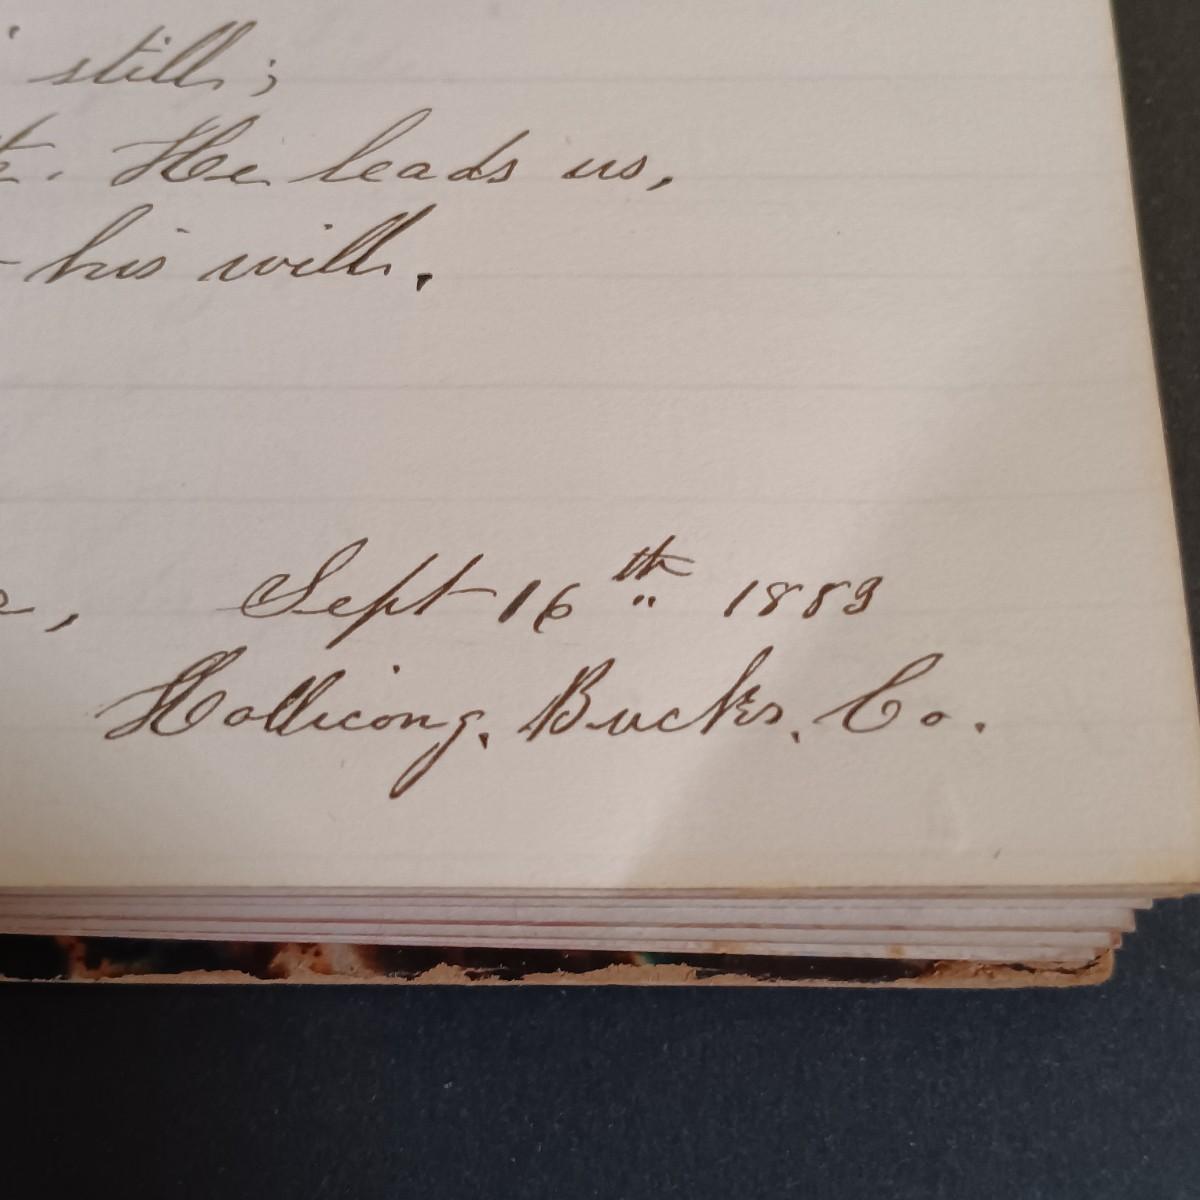 still;
He leads us,
his will.
Sept 16th 1883
Hollicong, Bucks, Co.